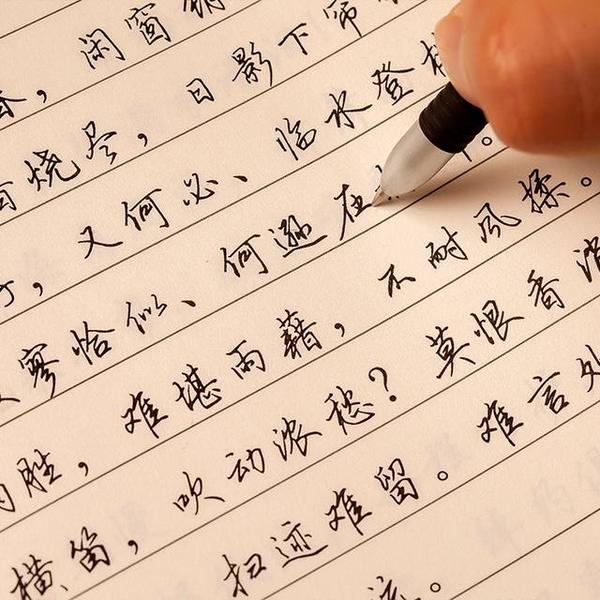 闲窗
烧尽，日影下帘
，又何必、临水登
寥恰似、何逊在
胜，难堪雨藉，不耐风揉。
横笛，吹动浓愁？莫恨香消
扫迹难留。难言处
流。